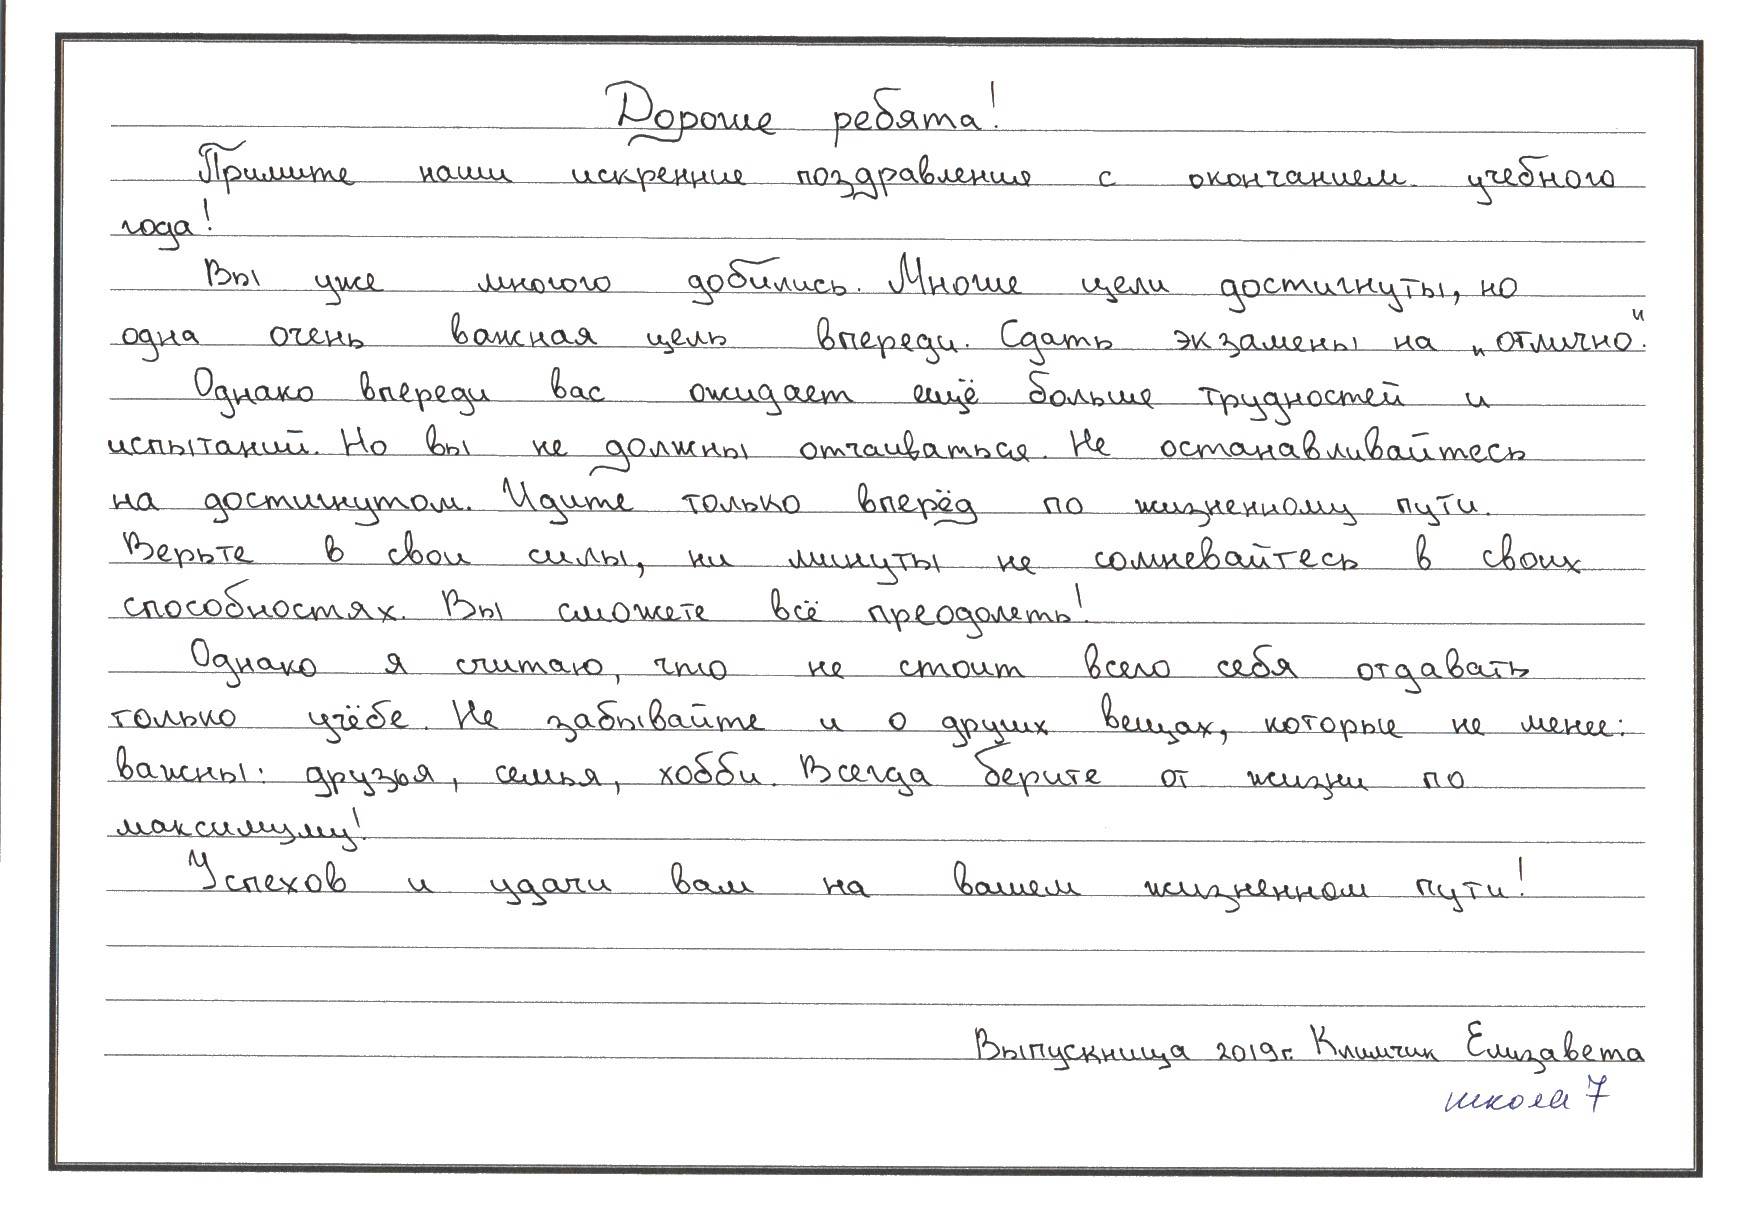 Дорогие ребята!
Примите наши искренние поздравления с окончанием учебного
года!
Вы уже многого добились. Многие цели достигнуты, но
одна очень важная цель впереди. Сдать экзамены на „отлично".
Однако впереди вас ожидает ещё больше трудностей и
испытаний. Но вы не должны отчаиваться. Не останавливайтесь
на достигнутом. Идите только вперёд по жизненному пути.
Верьте в свои силы, ни минуты не сомневайтесь в своих
способностях. Вы сможете всё преодолеть!
Однако я считаю, что не стоит всего себя отдавать
только учёбе. Не забывайте и о других вещах, которые не менее:
важны: друзья, семья, хобби. Всегда берите от жизни по
максимуму!
Успехов и удачи вам на вашем жизненном пути!
Выпускница 2019г. Климчик Елизавета
школа 7